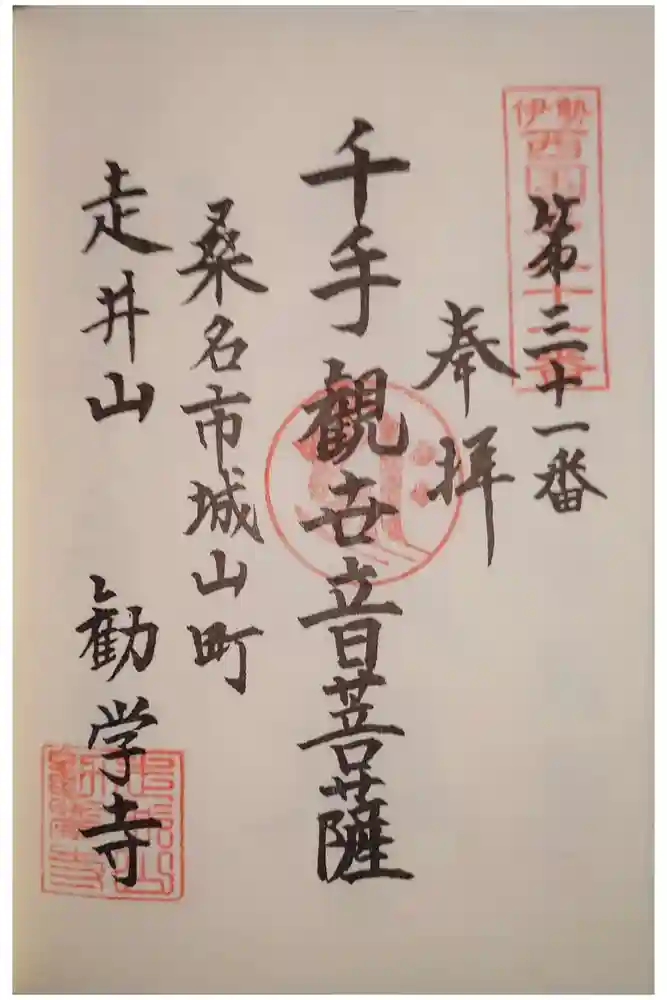 伊勢
西国三十三番
第三十一番
奉拝
千手観世音菩薩
桑名市城山町
走井山 勧学寺